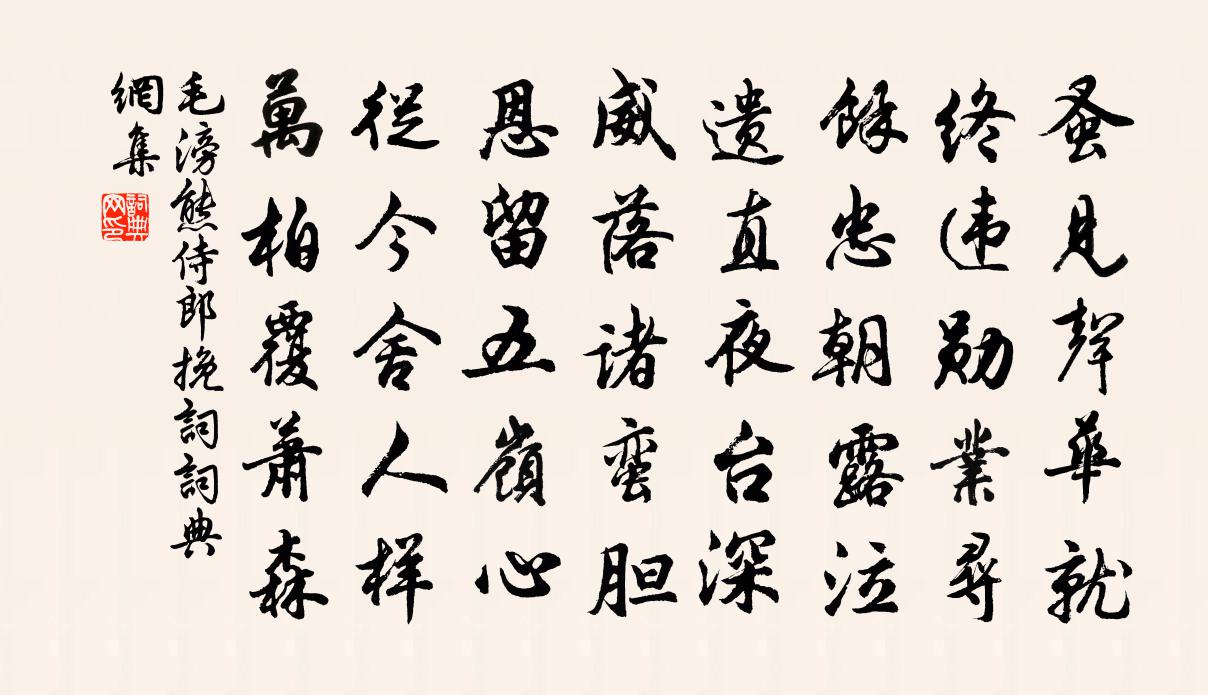 蚤见聲華就
终违勋業尋
餘忠朝露泣
遗直夜台深
威落诸蛮胆
恩留五嶺心
從今舍人样
萬柏覆蕭森
毛滂熊侍郎挽詞詞典
網集
詞典网印